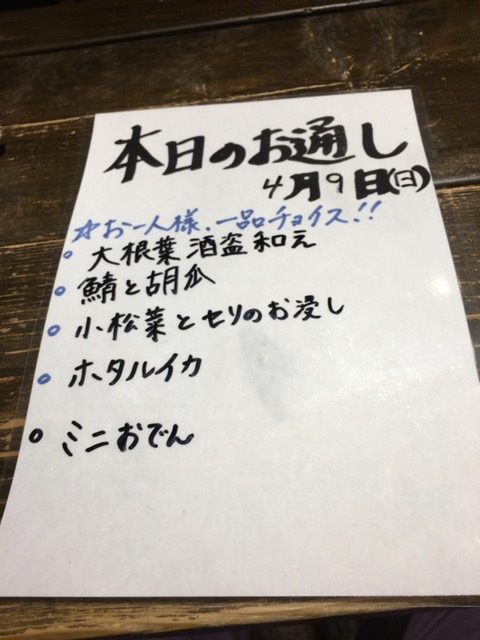 本日のお通し
4月9日(日)
☆お一人様、一品チョイス!!
○ 大根葉酒盗和え
○ 鯖と胡瓜
○ 小松菜とセリのお浸し
○ ホタルイカ
○ ミニおでん